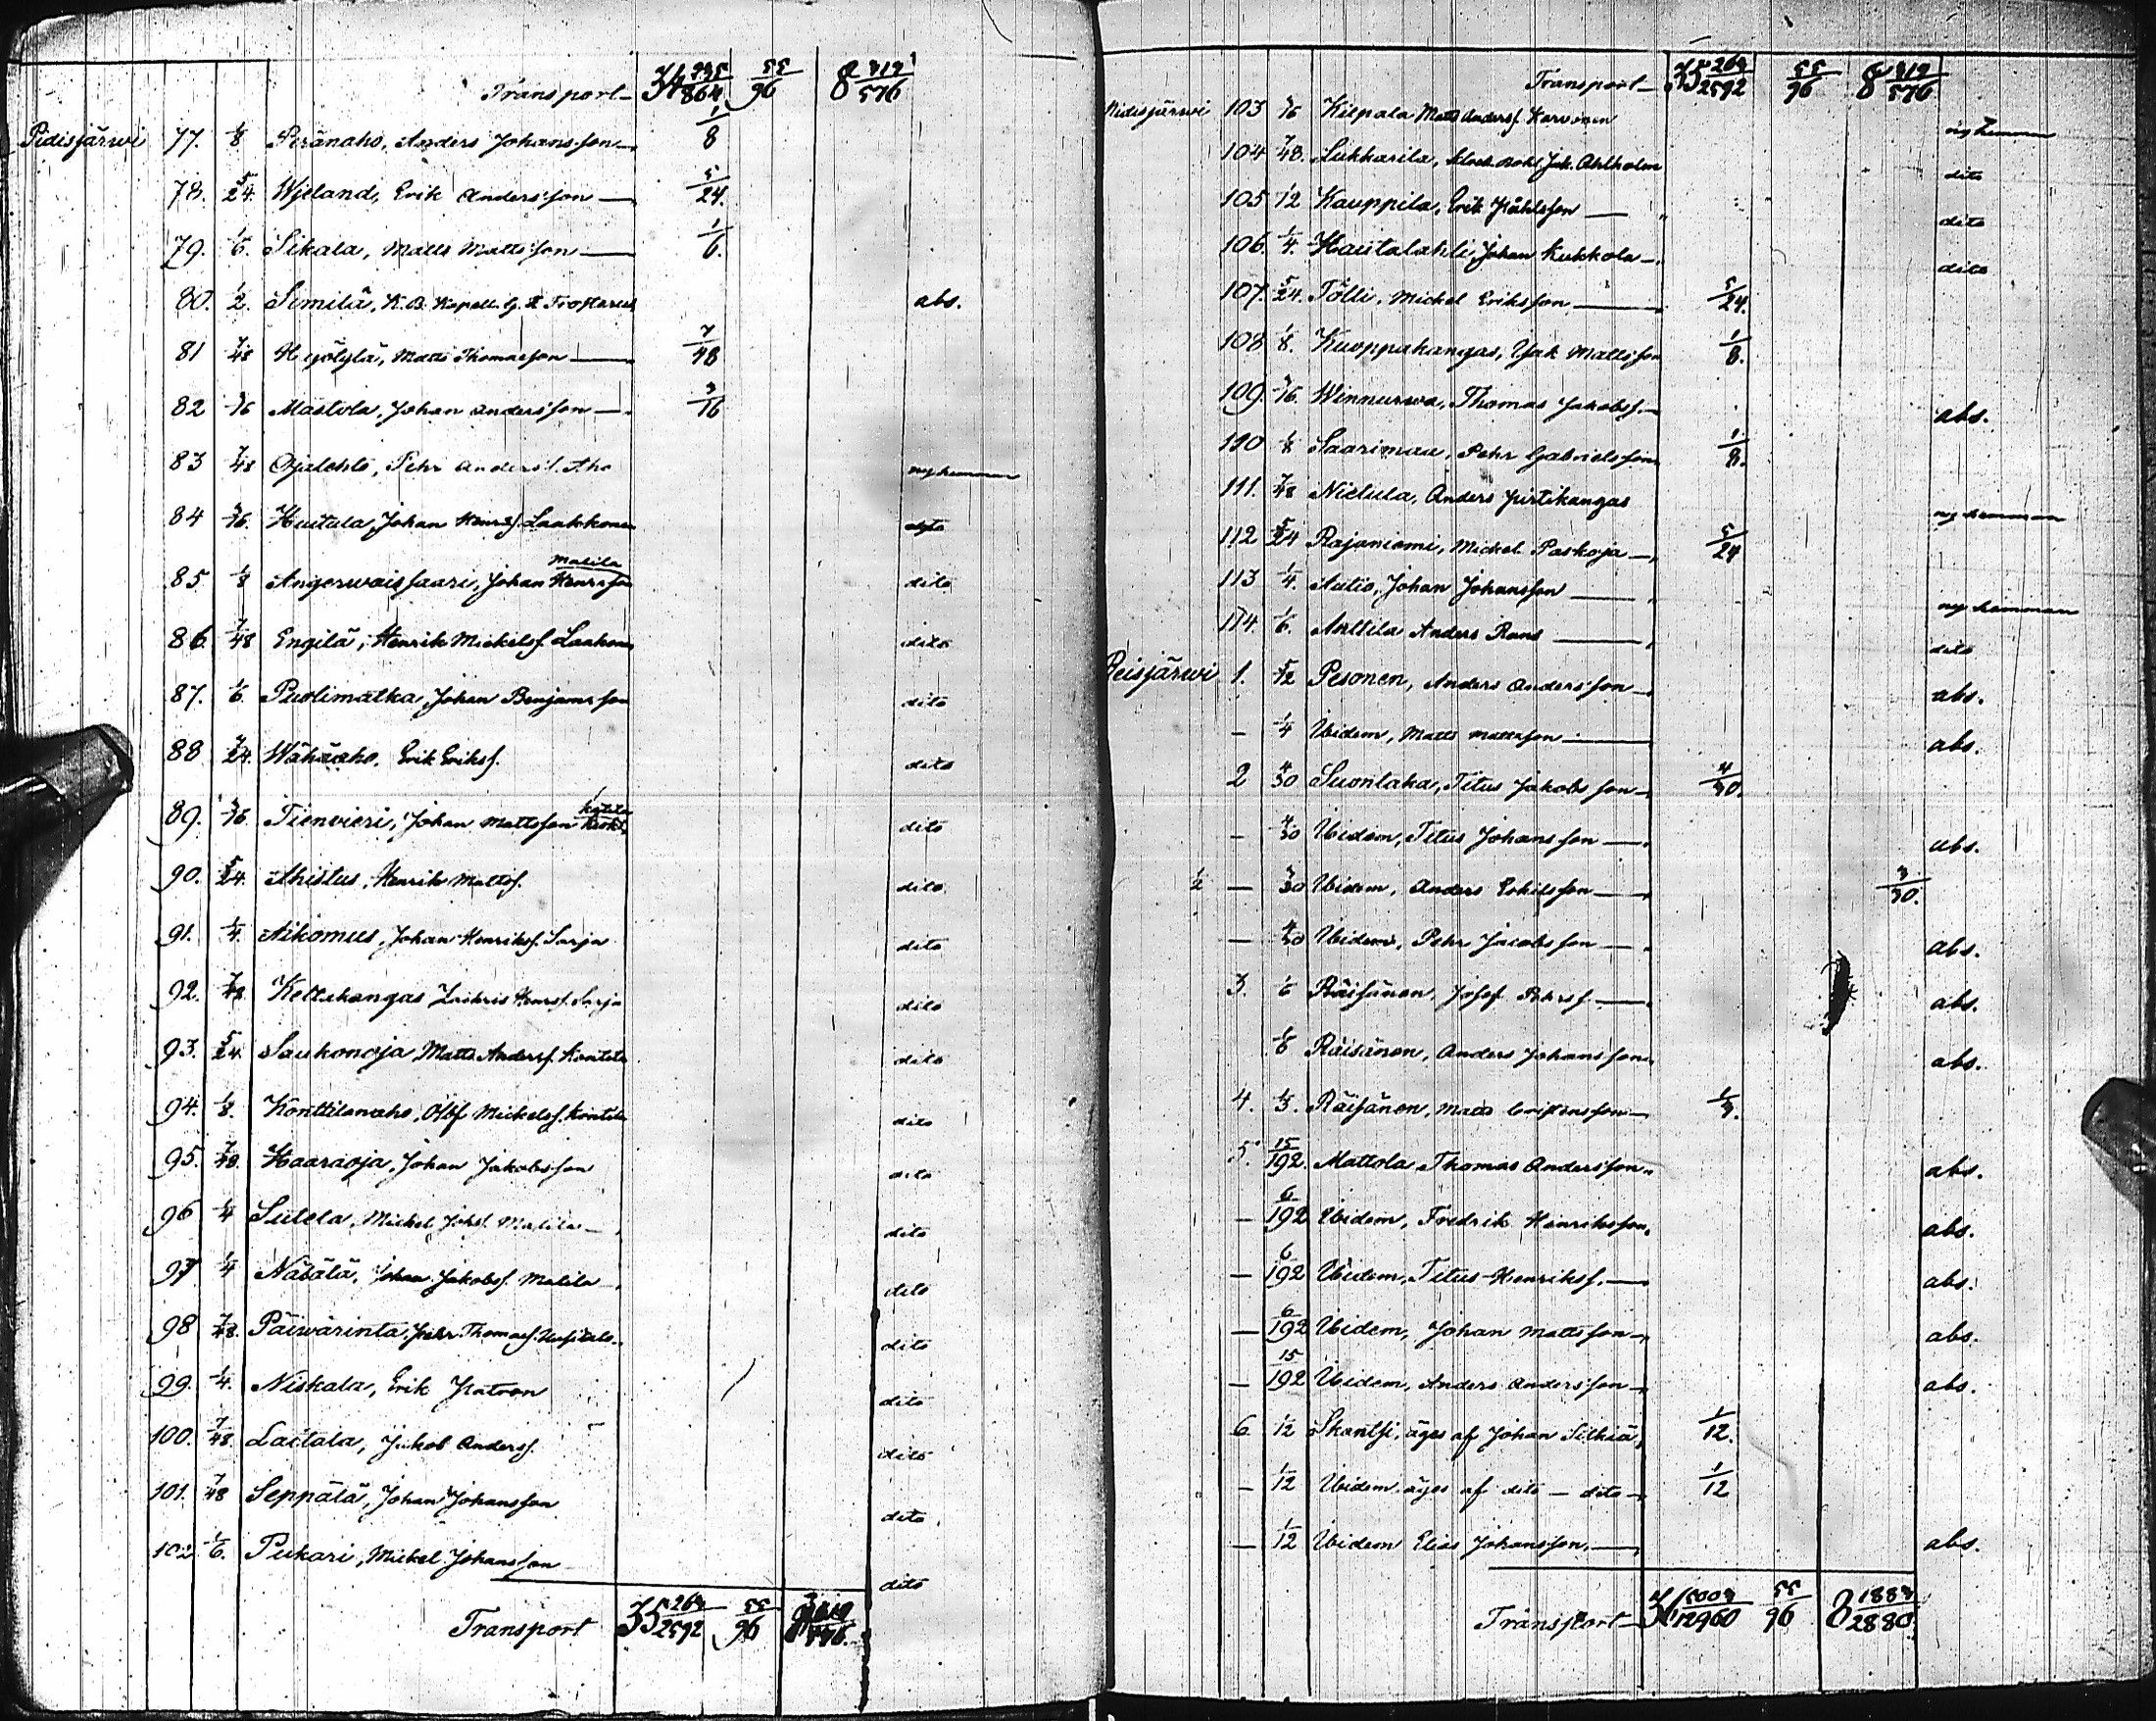 Transport 34 735/864 55/96 8 319/576
Pidisjärwi 77. 1/8 Peränaho, Anders Johansson 1/8
78. 5/24. Wjeland, Erik Andersson 5/24.
79. 1/6. Sikala, Matts Mattsson 1/6.
80. 1/2. Similä, K. B. Kapell. G. Frosterus abs.
81 7/48 Hyölylä, Matts Thomasson 7/48
82 3/16 Mastola, Johan Andersson 3/16
83 7/48 Ojalehto, Pehr Anderss. Aho ny hemman
84 3/16. Huitula, Johan Henrs. Laakkonen dito
85 1/8 Angerwaissaari, Johan Henrsson Malila dito
86. 7/48 Engilä, Henrik Mickelss. Laakonen dito
87. 1/6 Puolimatka, Johan Benjamsson dito
88 7/24. Wähäaho, Erik Erikss. dito
89. 3/16. Tienvieri, Johan Mattsson dito
90. 5/24. Ahistus, Henrik Mattss. dito
91. 1/4. Aikomus, Johan Henrikss. Sarja dito
92. 7/48 Kettukangas Zachris Henrss. Sarja dito
93. 5/24. Saukonoja, Matts Anderss. Konttila dito
94. 1/8. Konttilanaho, Olof Mickelss. Konttila dito
95. 7/48. Haaraoja, Johan Jakobsson dito
96 1/4 Sulela, Mickel Johss. Malila dito
97 1/4 Nätälä, Johan Jakobss. Malila dito
98 7/48. Päiwärinta, Pehr Thomass. dito
99. 1/4. Niskala, Erik dito
100. 7/48. Laitala, Jakob Anderss. dito
101. 7/48 Seppälä, Johan Johansson dito
102 1/6. Pukari, Mickel Johansson dito
Transport 35 263/2592 55/96 8 319/576
Transport 35 263/2592 55/96 8 319/576
Nidisjärwi 103 3/16 Kilpala Matts Anderss. Karvonen ny hemman
104 7/48. Sukkarila, Jak. Ahlholm dito
105 1/12 Kauppila, Erik dito
106. 1/4. Hautalahti, Johan Kukkola dito
107. 5/24. Tölli, Mickel Eriksson 5/24.
108 1/8. Kuoppakangas, Jak Mattsson 1/8.
109. 3/16. Winnurwa, Thomas Jakobss. abs.
110 1/8 Saarimaa, Pehr Gabrielsson 1/8.
111. 7/48 Nielula, Anders Pirtikangas ny hemman
112 5/24 Rajaniemi, Mickel Paskoja 5/24
113 1/4. Autio, Johan Johansson ny hemman
114. 1/6. Anttila Anders Rans dito
Reisjärwi 1. 5/12 Pesonen, Anders Andersson abs.
— 1/4 Ibidem, Matts Mattsson abs.
2 4/30 Suonlaka, Titus Jakobsson 4/30.
— 4/30 Ibidem, Titus Johansson abs.
1/2 — 3/30 Ibidem, Anders Eskilsson 3/30.
— 4/30 Ibidem, Pehr Jacobsson abs.
3. 1/6 Räisänen, Josef Pehrss. abs.
1/6 Räisänen, Anders Johansson abs.
4. 1/3. Räisänen, Matts Cristersson 1/3.
5. 15/192. Mattola Thomas Andersson abs.
— 6/192 Ibidem, Fredrik Henriksson abs.
— 6/192 Ibidem, Titus Henrikss. abs.
— 6/192 Ibidem, Johan Mattsson abs.
— 15/192 Ibidem, Anders Andersson abs.
6 1/12 Skantsi, äges af Johan Silkiä 1/12.
— 1/12 Ibidem äges af dito — dito 1/12
— 1/12 Ibidem Elias Johansson abs.
Transport 36 5003/12960 55/96 8 1883/2880.